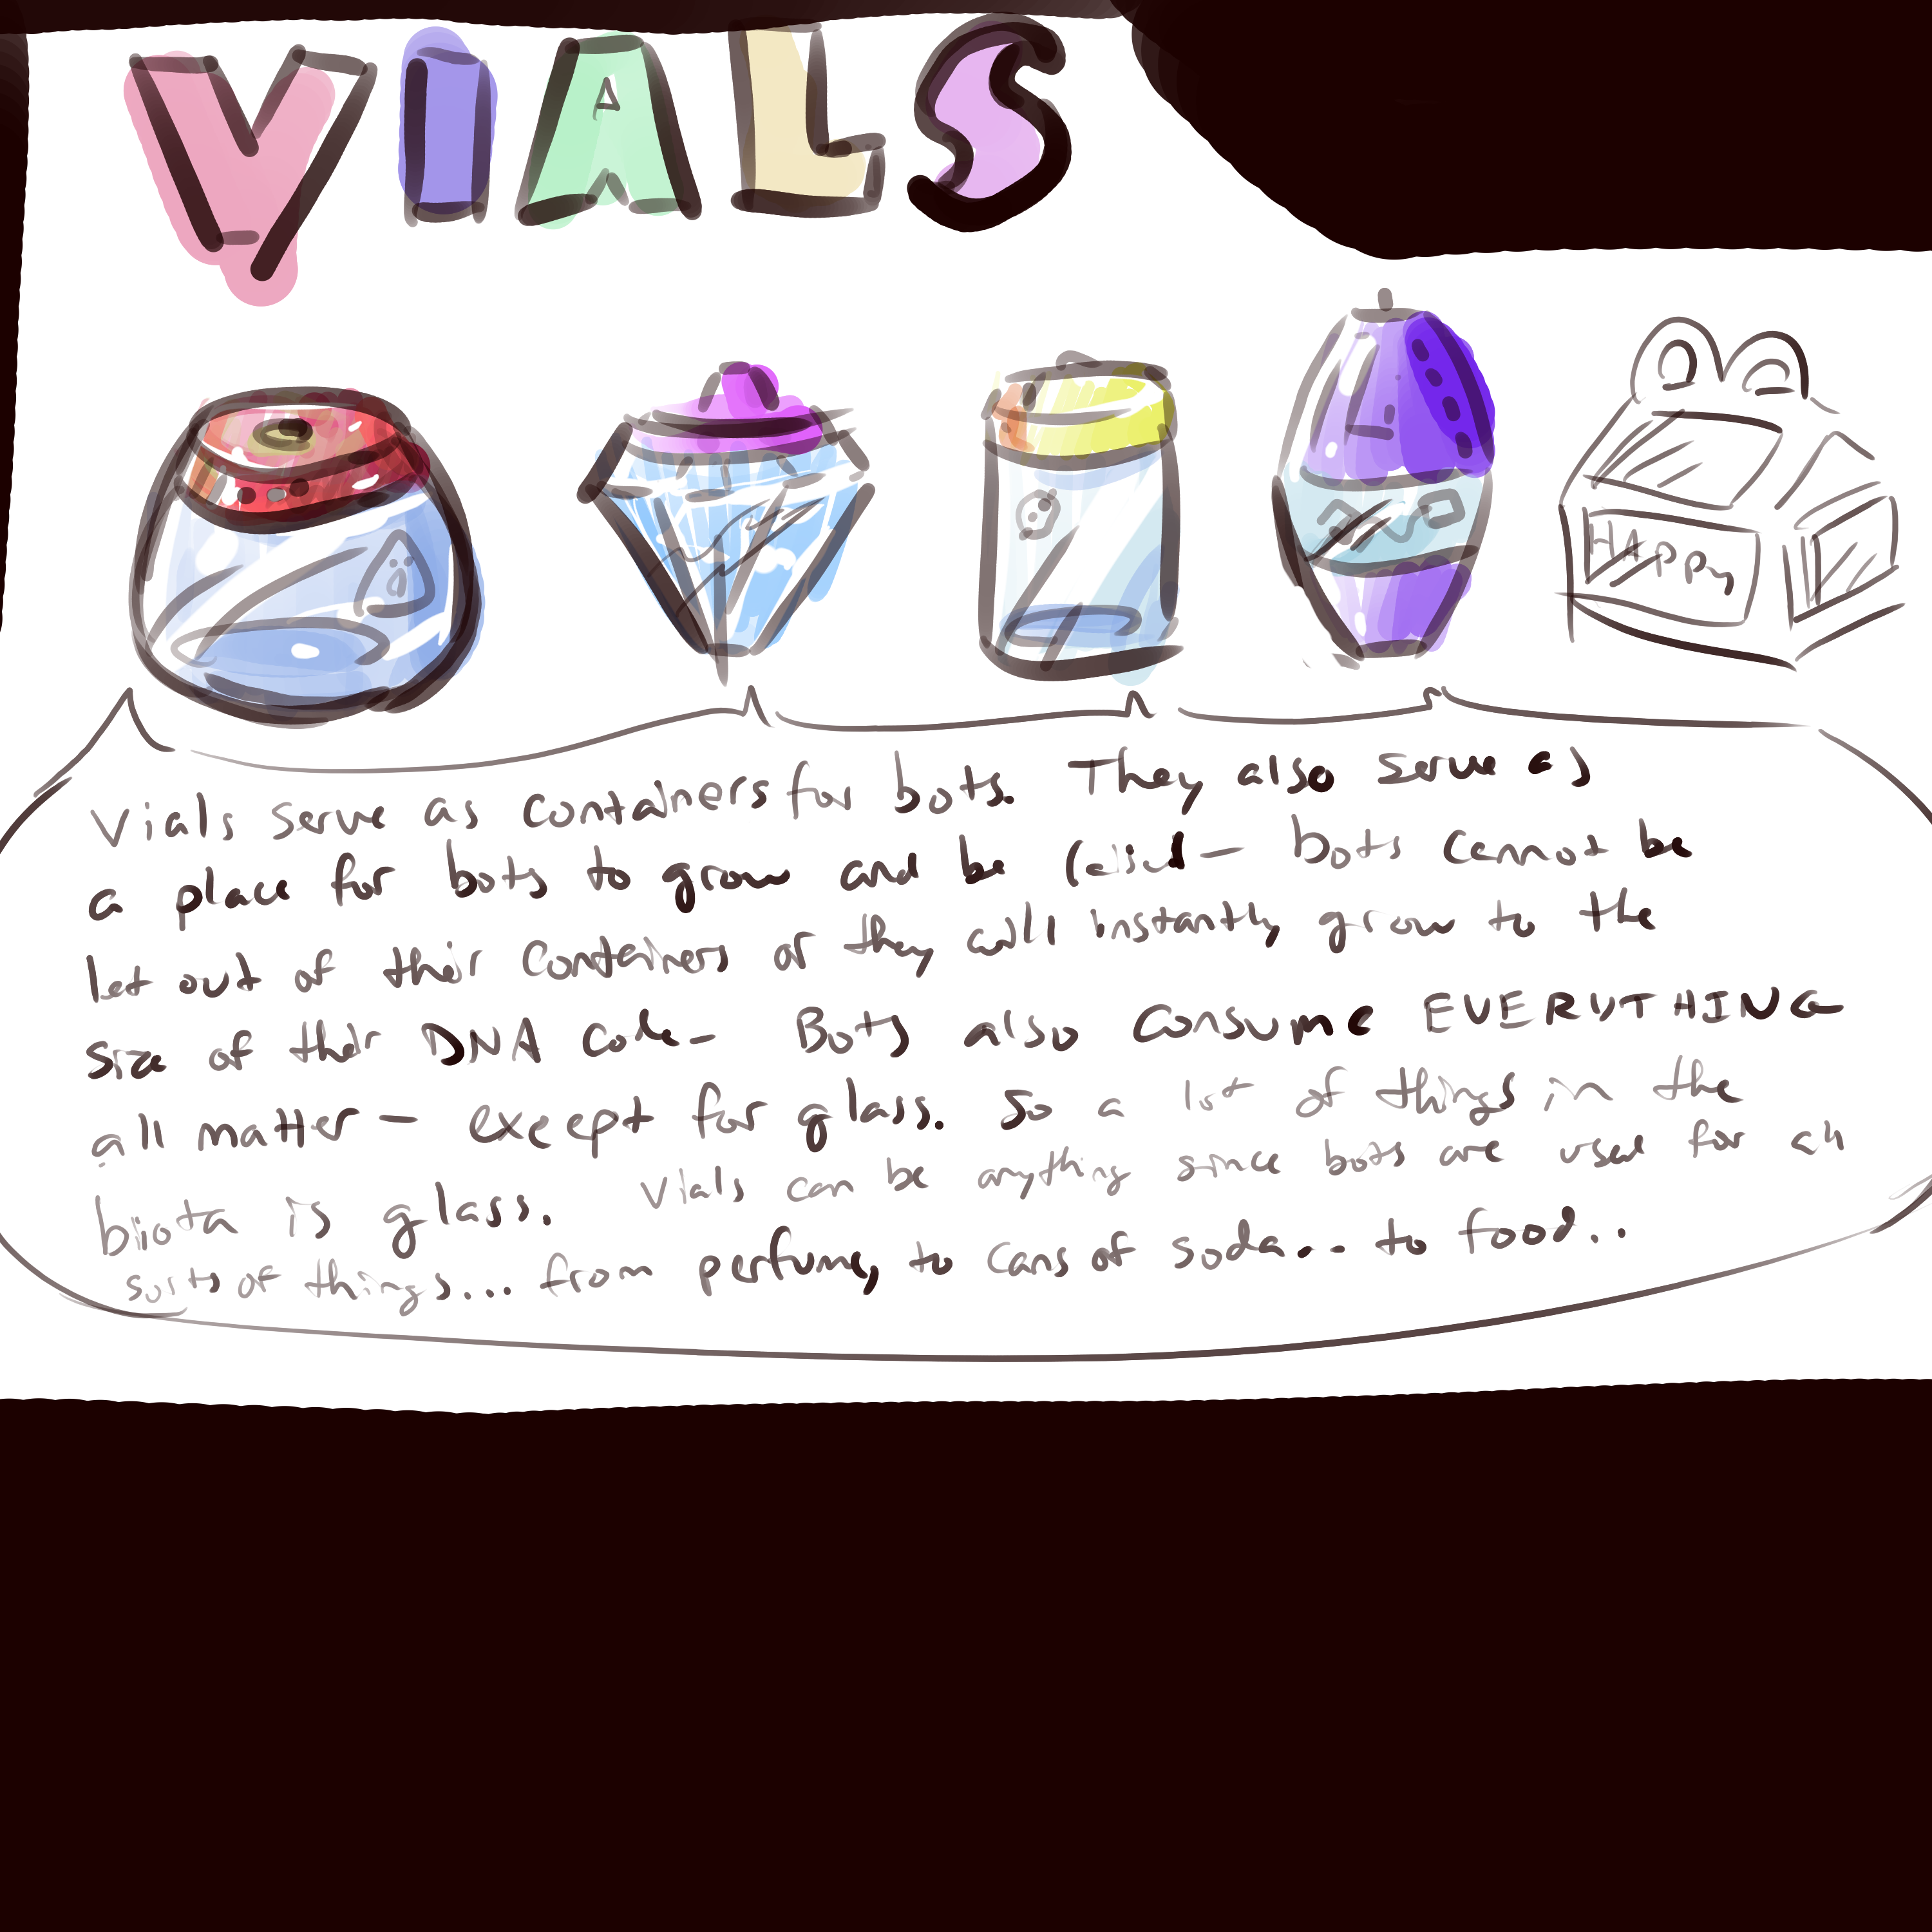 VIALS
HAPPY
Vials serve as containers for bots. They also serve as
a place for bots to grow and be raised - bots cannot be
let out of their containers or they will instantly grow to the
size of their DNA code - Bots also consume EVERYTHING
all matter - except for glass. So a lot of things in the
biota is glass. Vials can be anything since bots are used for all
sorts of things... from perfume, to cans of soda... to food..